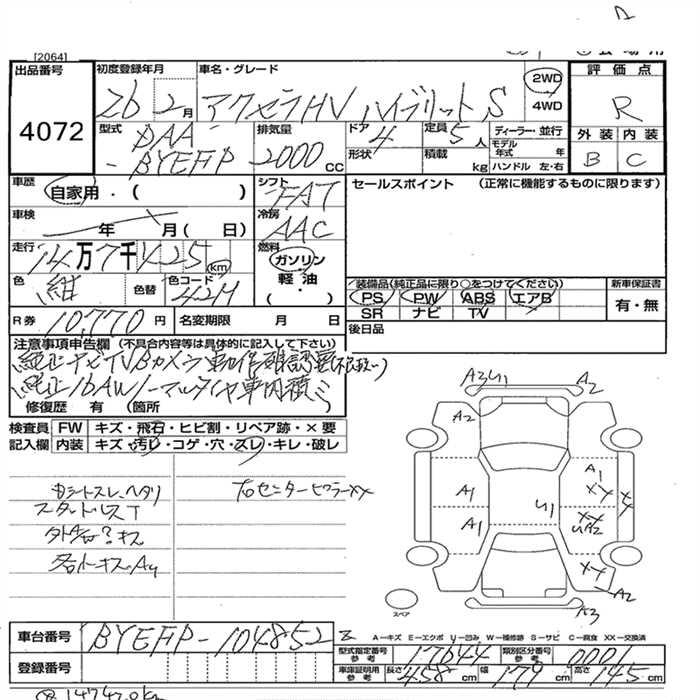 [2064]
出品番号 初度登録年月 車名・グレード 2WD 評価点
4072 26 2月 アクセラHV ハイブリット S 4WD R
型式 DAA-BYEFP 排気量 2000cc ドア 4 定員 5人 ディーラー・並行 外装 内装
形状 積載 kg モデル年式 年 ハンドル 左・右 B C
車歴 自家用・( ) シフト FAT セールスポイント (正常に機能するものに限ります)
車検 年 月( 日) 冷房 AAC
走行 14万7千425 km 燃料 ガソリン
色 紺 色替 色コード 42M 軽油 ( ・ ) 装備品(純正品に限り○をつけてください) 新車保証書
PS PW ABS エアB 有・無
SR ナビ TV
R券 10,770円 名変期限 月 日 後日品
注意事項申告欄 (不具合内容等は具体的に記入して下さい)
純正ナビTVBカメラ動作確認要
純正16AW ノーマルタイヤ車内積
修復歴 有 (箇所 )
A3U1 A2
検査員 FW キズ・飛石・ヒビ割・リペア跡・×要
記入欄 内装 キズ・汚レ・コゲ・穴・スレ・キレ・破レ
A2
カシートスレ、ヘタリ 右センターピラーXX
A1 A1 XX XX
スタッドレスT
A1 U1 XX UA2
各所キズA4
XX A2
スペア A3
A−キズ E−エクボ U−凹み W−補修跡 S−サビ C−腐食 XX−交換済
車台番号 BYEFP-104852
型式指定番号 参考 17644 類別区分番号 参考 0001
登録番号 車庫証明用 参考 長さ 458cm 幅 179cm 高さ 145cm
147420km